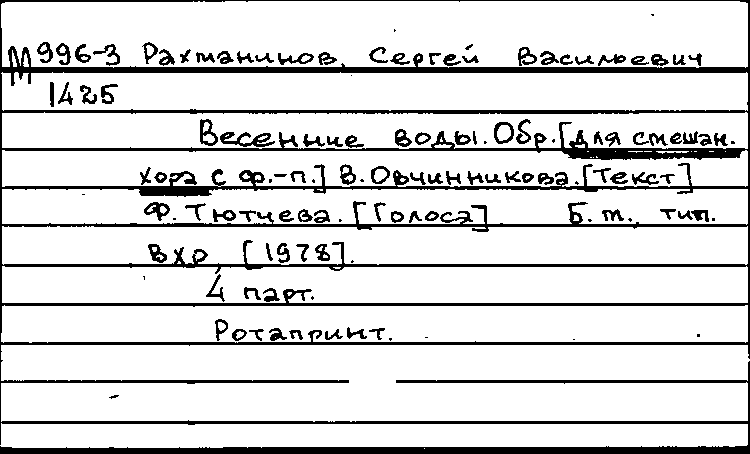 М 996-3 Рахманинов, Сергей Васильевич
1425
Весенние воды. Обр. [для смешан.
хора с ф.-п.] В. Овчинникова. [Текст]
Ф. Тютчева. [Голоса]. Б. м., тип.
ВХО, [1978].
4 парт.
Ротапринт.